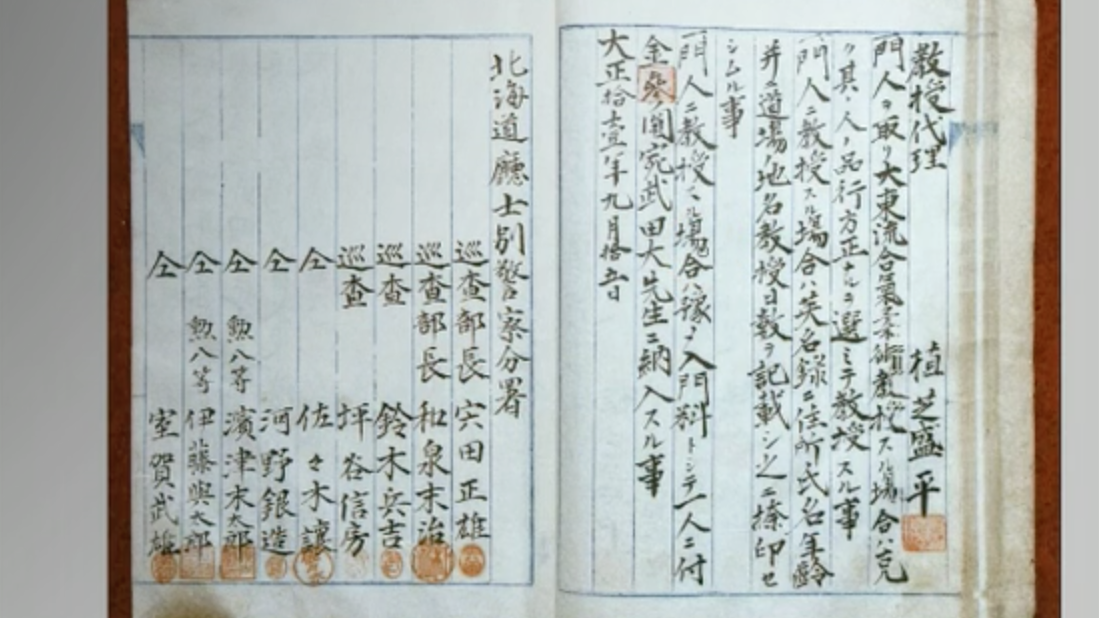 教授代理 植芝盛平
一門人ヲ取リ大東流合氣柔術教授スル場合ハ克
ク其ノ人ノ品行方正ナルヲ選ミテ教授スル事
一門人ニ教授スル場合ハ英名録ニ住所氏名年齢
并ニ道場ノ地名教授日数ヲ記載シ之ニ捺印セ
シムル事
一門人ニ教授スル場合ハ豫メ入門料トシテ一人ニ付
金參圓宛武田大先生ニ納入スル事
大正拾壹年九月拾五日
北海道廳士別警察分署
巡査部長 宍田正雄
巡査部長 和泉末治
巡査 鈴木兵吉
巡査 坪谷信房
仝 佐々木讓
仝 河野銀造
仝 勲八等 濱津末太郎
仝 勲八等 伊藤與太郎
仝 室賀武雄